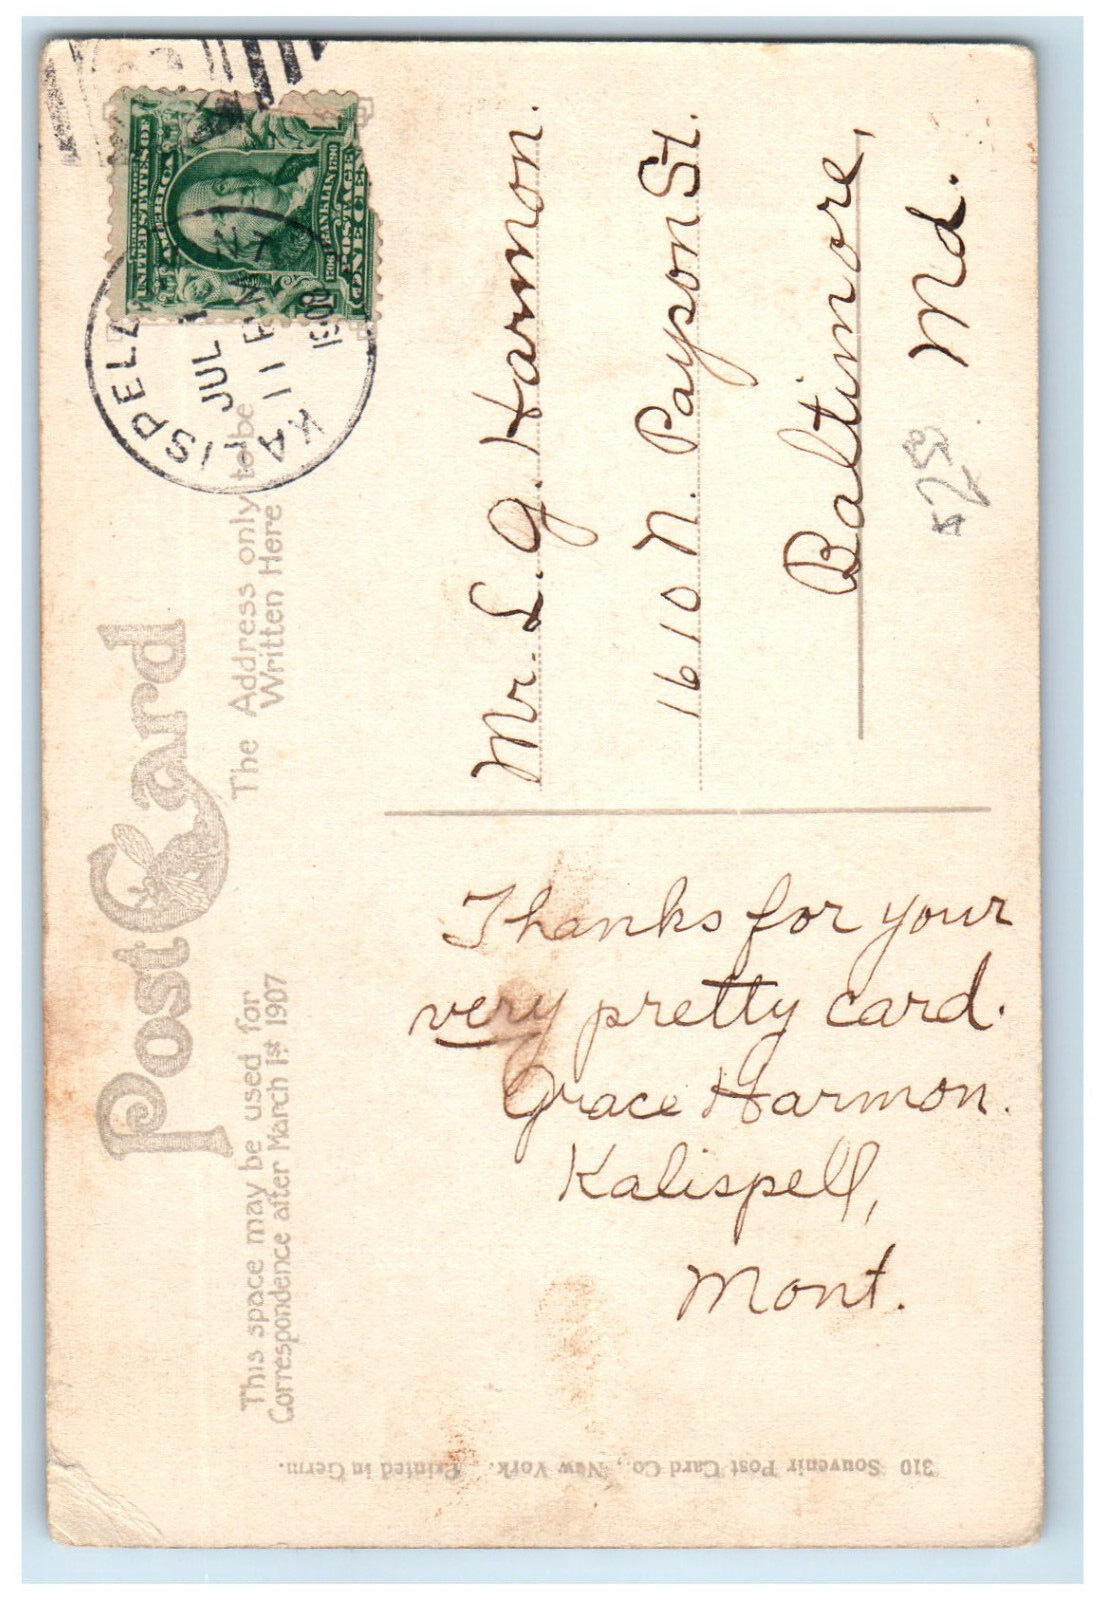 Post Card
This space may be used for
Correspondence after March 1st 1907
The Address only to be
Written Here
KALISPELL
JUL
11 PM
1908
UNITED STATES OF
AMERICA
1706 FRANKLIN 1790
POSTAGE
ONE CENT
Mr. L. G. Harmon.
1610 N. Payson St.
Baltimore,
Md.
Thanks for your
very pretty card.
Grace Harmon.
Kalispell,
Mont.
310 Souvenir Post Card Co., New York. Printed in Germ.